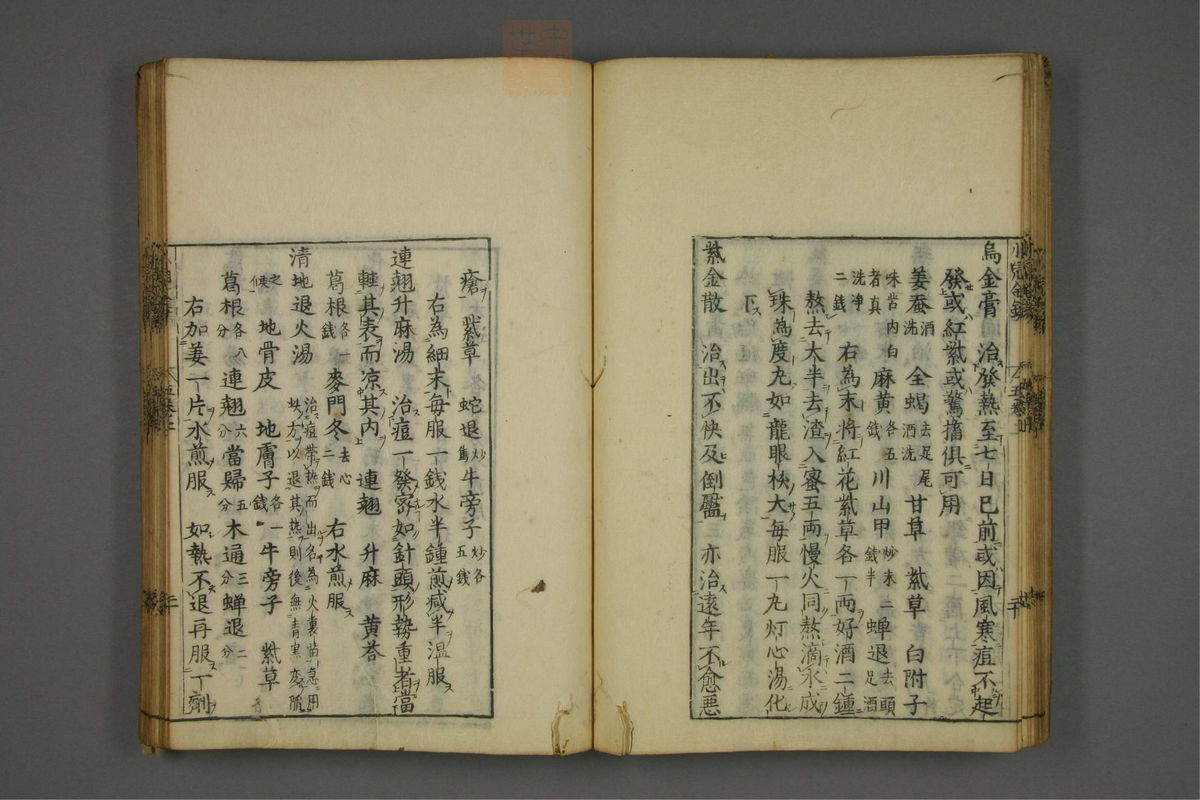 烏金膏 治發熱至七日已前或因風寒痘不起
發或紅紫或驚搐俱可用
姜蚕酒洗 全蝎去足尾酒洗 甘草 紫草 白附子
味苦内白者真洗浄二錢 麻黄各五錢 川山甲炒末二錢半 蝉退去頭足酒
右為末將紅花紫草各一両好酒二鍾
熬去大半去渣入蜜五両慢火同熬滴水成
珠為度丸如龍眼核大毎服一丸灯心湯化
下
紫金散 治出不快及倒靨亦治遠年不愈悪
瘡 紫草 蛇退炒 牛旁子炒各五錢
右為細末毎服一錢水半鍾煎减半温服
連翹升麻湯 治痘一發密如針頭形勢重者當
輕其表而凉其内 連翹 升麻 黄芩
葛根各一錢 麥門冬去心二錢 右水煎服
清地退火湯 治痘帶熱而出名為火裏苗急用此方以退其熱則後無青黒変陷之候
地骨皮 地膚子各一錢 牛旁子 紫草
葛根各八分 連翹六分 當歸五分 木通三分 蝉退二分
右加姜一片水煎服 如熱不退再服一劑